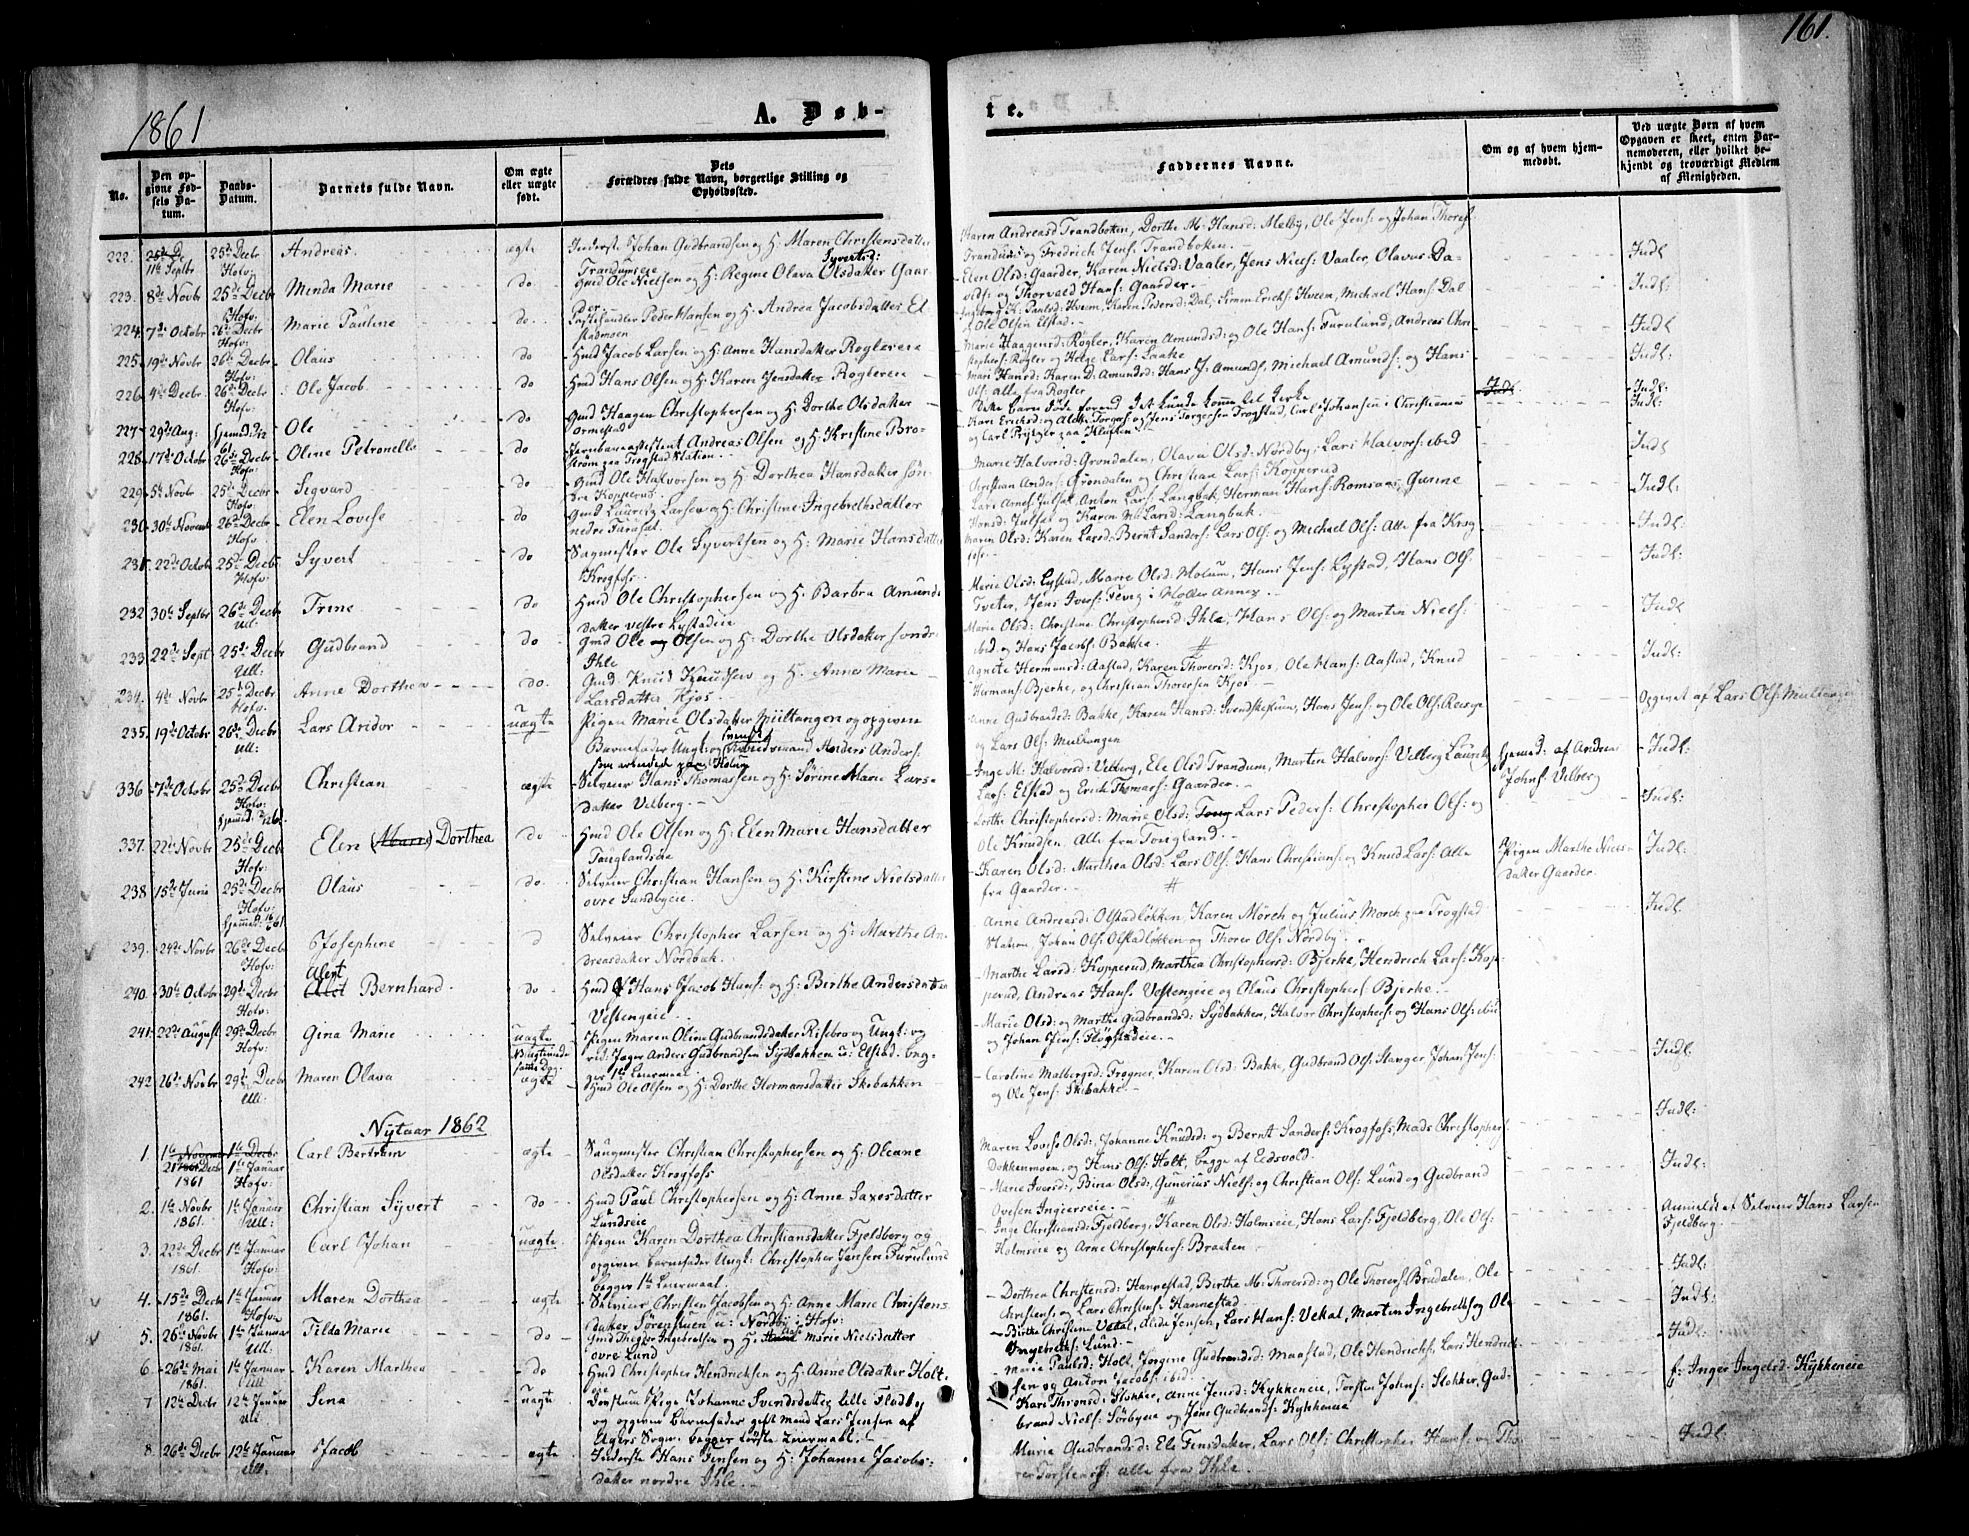 161.
1861
A. Døb-
te.
No.
Den opgivne Fødsels Datum.
Daabs-Datum.
Barnets fulde Navn.
Om ægte eller uægte født.
Dets Forældres fulde Navn, borgerlige Stilling og Opholdssted.
Faddernes Navne.
Om og af hvem hjemmedøbt.
Ved uægte Børn af hvem Opgaven er skeet, enten Barnemoderen, eller hvilket bekjendt og troværdigt Medlem af Menigheden.
222. 11te Septbr 25de Decbr Hofv: Andreas ægte Inderste Johan Gudbrandsen og H: Maren Christensdatter
Trandumseie
Karen Andreasd Trandboken, Dorthe M: Hansd: Melby, Ole Jens: og Johan Thores:
Trandum og Fredrich Jens: Trandboken. Indl:
223. 8de Novbr 25de Decbr Hofv: Minda Marie do Gmd Ole Nielsen og H: Regine Olava Syvertsd: Olsdatter Gaar
Elen Olsd: Gaarder, Karen Nielsd: Vaaler, Jens Niels: Vaaler, Olavus Da-
vids: og Thorvald Hans: Gaarder. Indl:
224. 7de Octobr 26de Decbr Hofv: Marie Pauline do Peder Hansen og H: Andrea Jacobsdatter El-
stadmoen
Hveem, Karen Pedersd: Dal, Simen Ericks: Hveem, Michael Hans: Dal
Ole Olsen Elstad. Indl:
225. 19de Novbr 26de Decbr Hofv: Olaus do Hmd Jacob Larsen og H: Anne Hansdatter Roglereie
Marie Haagensd: Røgler, Karen Amundsd: og Ole Hans: Furulund, Andreas Chri-
stophers: Røgler og Helge Lars: Laake Indl:
226. 4de Decbr 26de Decbr Hofv: Ole Jacob do Hmd Hans Olsen og H: Karen Jensdatter Rogleren
Mari Hansd: Karen D: Amundsd: Hans J: Amunds: Michael Amunds: og Hans
Ols: alle fra Røgler Indl:
227. 29de Aug: Ole do Gmd Haagen Christophersen og H: Dorthe Olsdatter
Ormestad
Dette Barn døde forend det kunde komme til Kirke Indl:
228. 17de Octobr 26de Decbr Hofv: Oline Petronelle do Jernbaneassistent Andreas Olsen og H: Kristine Bro-
strøm paa Trogstad Station.
Kari Ericksd: og Jens Torgersen Trogstad, Carl Johansen i Christiania
og Carl Kløften. Indl:
229. 5te Novbr 25de Decbr Hofv: Sigvard do Gmd Ole Halvorsen og H: Dorthea Hansdatter søn-
dre Kopperud.
Marie Halvorsd: Grøndalen, Olava Olsd: Nordby, Lars Halvors: ibid
Christian Anders: Grøndalen og Christian Lars: Kopperud Indl:
230. 30te Novembr 26de Decbr Hofv: Elen Lovise do Gmd Lauritz Larsen og H: Christine Ingebrethsdatter
nedre Furuset.
Lars Arnes: Julsat, Anton Lars: Langbak, Herman Hans: Romsaas, Gunine
Hansd: Julsat og Karen M: Larsd: Langbak. Indl:
231. 22de Octobr 25de Decbr Hofv: Syvert do Sagmester Ole Syvertsen og H: Marie Hansdatter
Krogfos.
Maren Olsd: Karen Larsd: Bernt Sanders: Lars Ols: og Michael Ols: Alle fra Krog
fos. Indl:
232 30te Septbr 26de Decbr Ull: Trine do Hmd Ole Christophersen og H: Barbra Amunds
datter vestre Lystadeie
Marie Olsd: Lystad, Marie Olsd: Molum, Hans Jens: Lystad, Hans Ols:
Tveter, Jens Ivers: i Holter Annex. Indl:
233 22de Sept 25de Decbr Ull: Gudbrand do Gmd Ole Olsen og H: Dorthe Olsdatter søndre
Ihle
Marie Olsd: Christine Christophersd: Ihle, Hans Ols: og Martin Niels:
ibid og Hans Jacobs: Bakke. # Indl:
234. 4de Novbr 25de Decbr Hofv: Anne Dorthea do. Gmd. Knud Knudsen og H. Anne Marie
Larsdatter Kjos.
Agnete Hermans: Aastad, Karen Thorersd: Kjos, Ole Hans: Aastad, Knud
Hermans: Bjerke, og Christian Thorersen Kjos Indl:
235. 19de Octobr 26de Decbr Ull: Lars Aridor uægte Pigen Marie Olsdatter Multangen og opgiven
Barnefader Ungk: og Arbeidsmand Anders Anders:
Anne Gudbrandsd: Bakke, Karen Hansd: Hans Jens: og Ole Ols:
og Lars Ols: Multangen Opgivet af Lars Ols: Multangen
336 7de Octobr 25de Decbr Hofv: Christian ægte Selveier Hans Thomassen og H: Sørine Marie Lars-
datter Vilberg.
Inge M: Halvorsd: Vilberg, Ele Olsd Trandum, Martin Halvors: Vilberg Lauritz
Lars: Elstad og Erich Thomas: Gaarder. Hjemed: af Andreas
Johns: Vilberg Indl:
337. 22de Novbr 25de Decbr Hofv: Elen (Marie) Dorthea do Hmd Ole Olsen og H: Elen Marie Hansdatter
Tonglandseie
Lorthe Christophersd: Marie Olsd: Lars Peders: Christopher Ols: og
Ole Knudsen, Alle fra Tongland. Indl:
238 15de Junie 25de Decbr Hofv: Olaus do. Selveier Christian Hansen og H: Kirstine Nielsdatter
øvre Sundbyeie.
Karen Olsd: Marthea Olsd: Lars Ols: Hans Christians: og Knud Lars: Alle
fra Gaarder. # Pigen Marthe Niels-
datter Gaarder. Indl:
239. 24de Novbr 26de Decbr Hofv: Josephine Selveier Christopher Larsen og H: Marthe An-
dreasdatter Nordbak.
Anne Andreasd: Olstadløkken, Karen Mörch og Julius Mørch paa Trogstad
Station, Johan Ols: Olstadløkken og Thorer Ols: Nordby. Indl:
240. 30te Octobr 29de Decbr Hofv: Alert Bernhard. do. Hmd Hans Jacob Hans: og H: Birthe Andersdatter
Vestengeie.
Marthe Larsd: Kopperud, Marthea Christophersd: Bjerke, Hendrich Lars: Kop-
perud, Andreas Hans: Vestengeie og Olaus Christophers: Bjerke.
241. 22de August 29de Decbr Hofv: Gina Marie uægte Pigen Maren Oline Gudbrandsdatter Risebro og Ungk: og
Jæger Anders Gudbrandsen Sydbakken u: Elstad. beg-
ges 1te Leiermaal
Marie Olsd: og Marthe Gudbrandsd: Sydbakken, Halvor Christophers: og Hans Ols: ibid
og Johan Jens:
242 26de Novbr 29de Decbr Ull: Maren Olava ægte Hmd Ole Olsen og H: Dorthe Hermansdatter Skibakken
Caroline Malbergsd: Trogner, Karen Olsd: Bakke, Gudbrand Ols: Stanger, Johan Jens:
og Ole Jens: Skibakke. Indl:
Nytaar 1862
1. 21de Decbr 1861 1te Januar Hofv: Carl Bertram ægte Saugmester Christian Christophersen og H: Oleane
Olsdatter Krogfoss
Maren Lovise Olsd: Johanne Knudsd: og Bernt Sanders: Krogfoss, Mads Christophers:
Dokkenmoen, og Hans Ols: Holt, begge af Eidsvold. Indl:
2. 1te Novbr 1861. 1te Januar Ull: Christian Syvert do Hmd Paul Christophersen og H: Anne Saxesdatter
Lundseie
Marie Iversd: Birea Olsd: Gunerius Niels: og Christian Ols: Lund og Gudbrand
Ovesen Ingierseie. Indl:
3. 22de Decbr 1861. 1te Januar Hofv: Carl Johan uægte. Pigen Karen Dorthea Christiansdatter Fjeldberg og
opgiven barnefader Ungk: Christopher Jensen Furulund
begges 1te Leiermaal.
Inge Christiansd: Fjeldberg, Karen Olsd: Holmseie, Hans Lars: Fjeldberg, Ole Ols:
Holmseie og Arne Christophers: Braaten. Anmeldt af Selveier Hans Larsen
Fjeldberg.
4. 15de Decbr 1861. 1te Januar Hofv: Maren Dorthea ægte Selveier Christen Jacobsen og H: Anne Marie Christens-
datter Sörenstuen u: Nordby i Hofv:
Dorthea Christensd: Hannestad, Birthe M: Thorersd: og Ole Thorers: Brudalen, Ole
Christens: og Lars Christens: Hannestad. Indl:
5. 26de Novbr 1861. 1te Januar Ull: Tilda Marie do Gmd Theodor Ingebretsen og H: Marie Nielsdatter
øvre Lund
Birthe Christine Vekal, Jensen, Lars Hans: Vekal, Martin Ingebreths: og Ole
Ingebreths: Lund. Indl:
6 26de Mai 1861. 1te Januar Ull Karen Marthea do Hmd Christopher Hendricksen og H: Anne Olsdatter Holt
eie
Marie Paulsd: Holt, Jorgine Gudbrandsd: Maastad, Ole Hendrichs: Lars Hendrich-
sen og Anton Jacobs: ibid. Indl:
7 12te Decbr 12te Januar Ull: Sina uægte Pige Johanne Svendsdatter Lille Fladby
og opgiven Barnefader gift Mand Lars Jensen af
Agers Sogn. begges første Leiermaal.
Kari Thronsd: Slokker, Anne Jensd: Kykkeneie, Torsten Johns: Slokker, Gud-
brand Niels: Torbyeie og Jens Gudbrands: Kykkeneie f: Inger Ingelsd: Kykkeneie
8. 26de Decbr 12te Januar Ull: Jacob ægte Inderste Hans Jensen og H: Johanne Jacobs-
datter nordre Ihle.
Marie Gudbrandsd: Ele Finsdatter, Lars Ols: Christopher Hans: og Tho-
rer Torstens: alle fra Ihle. Indl: